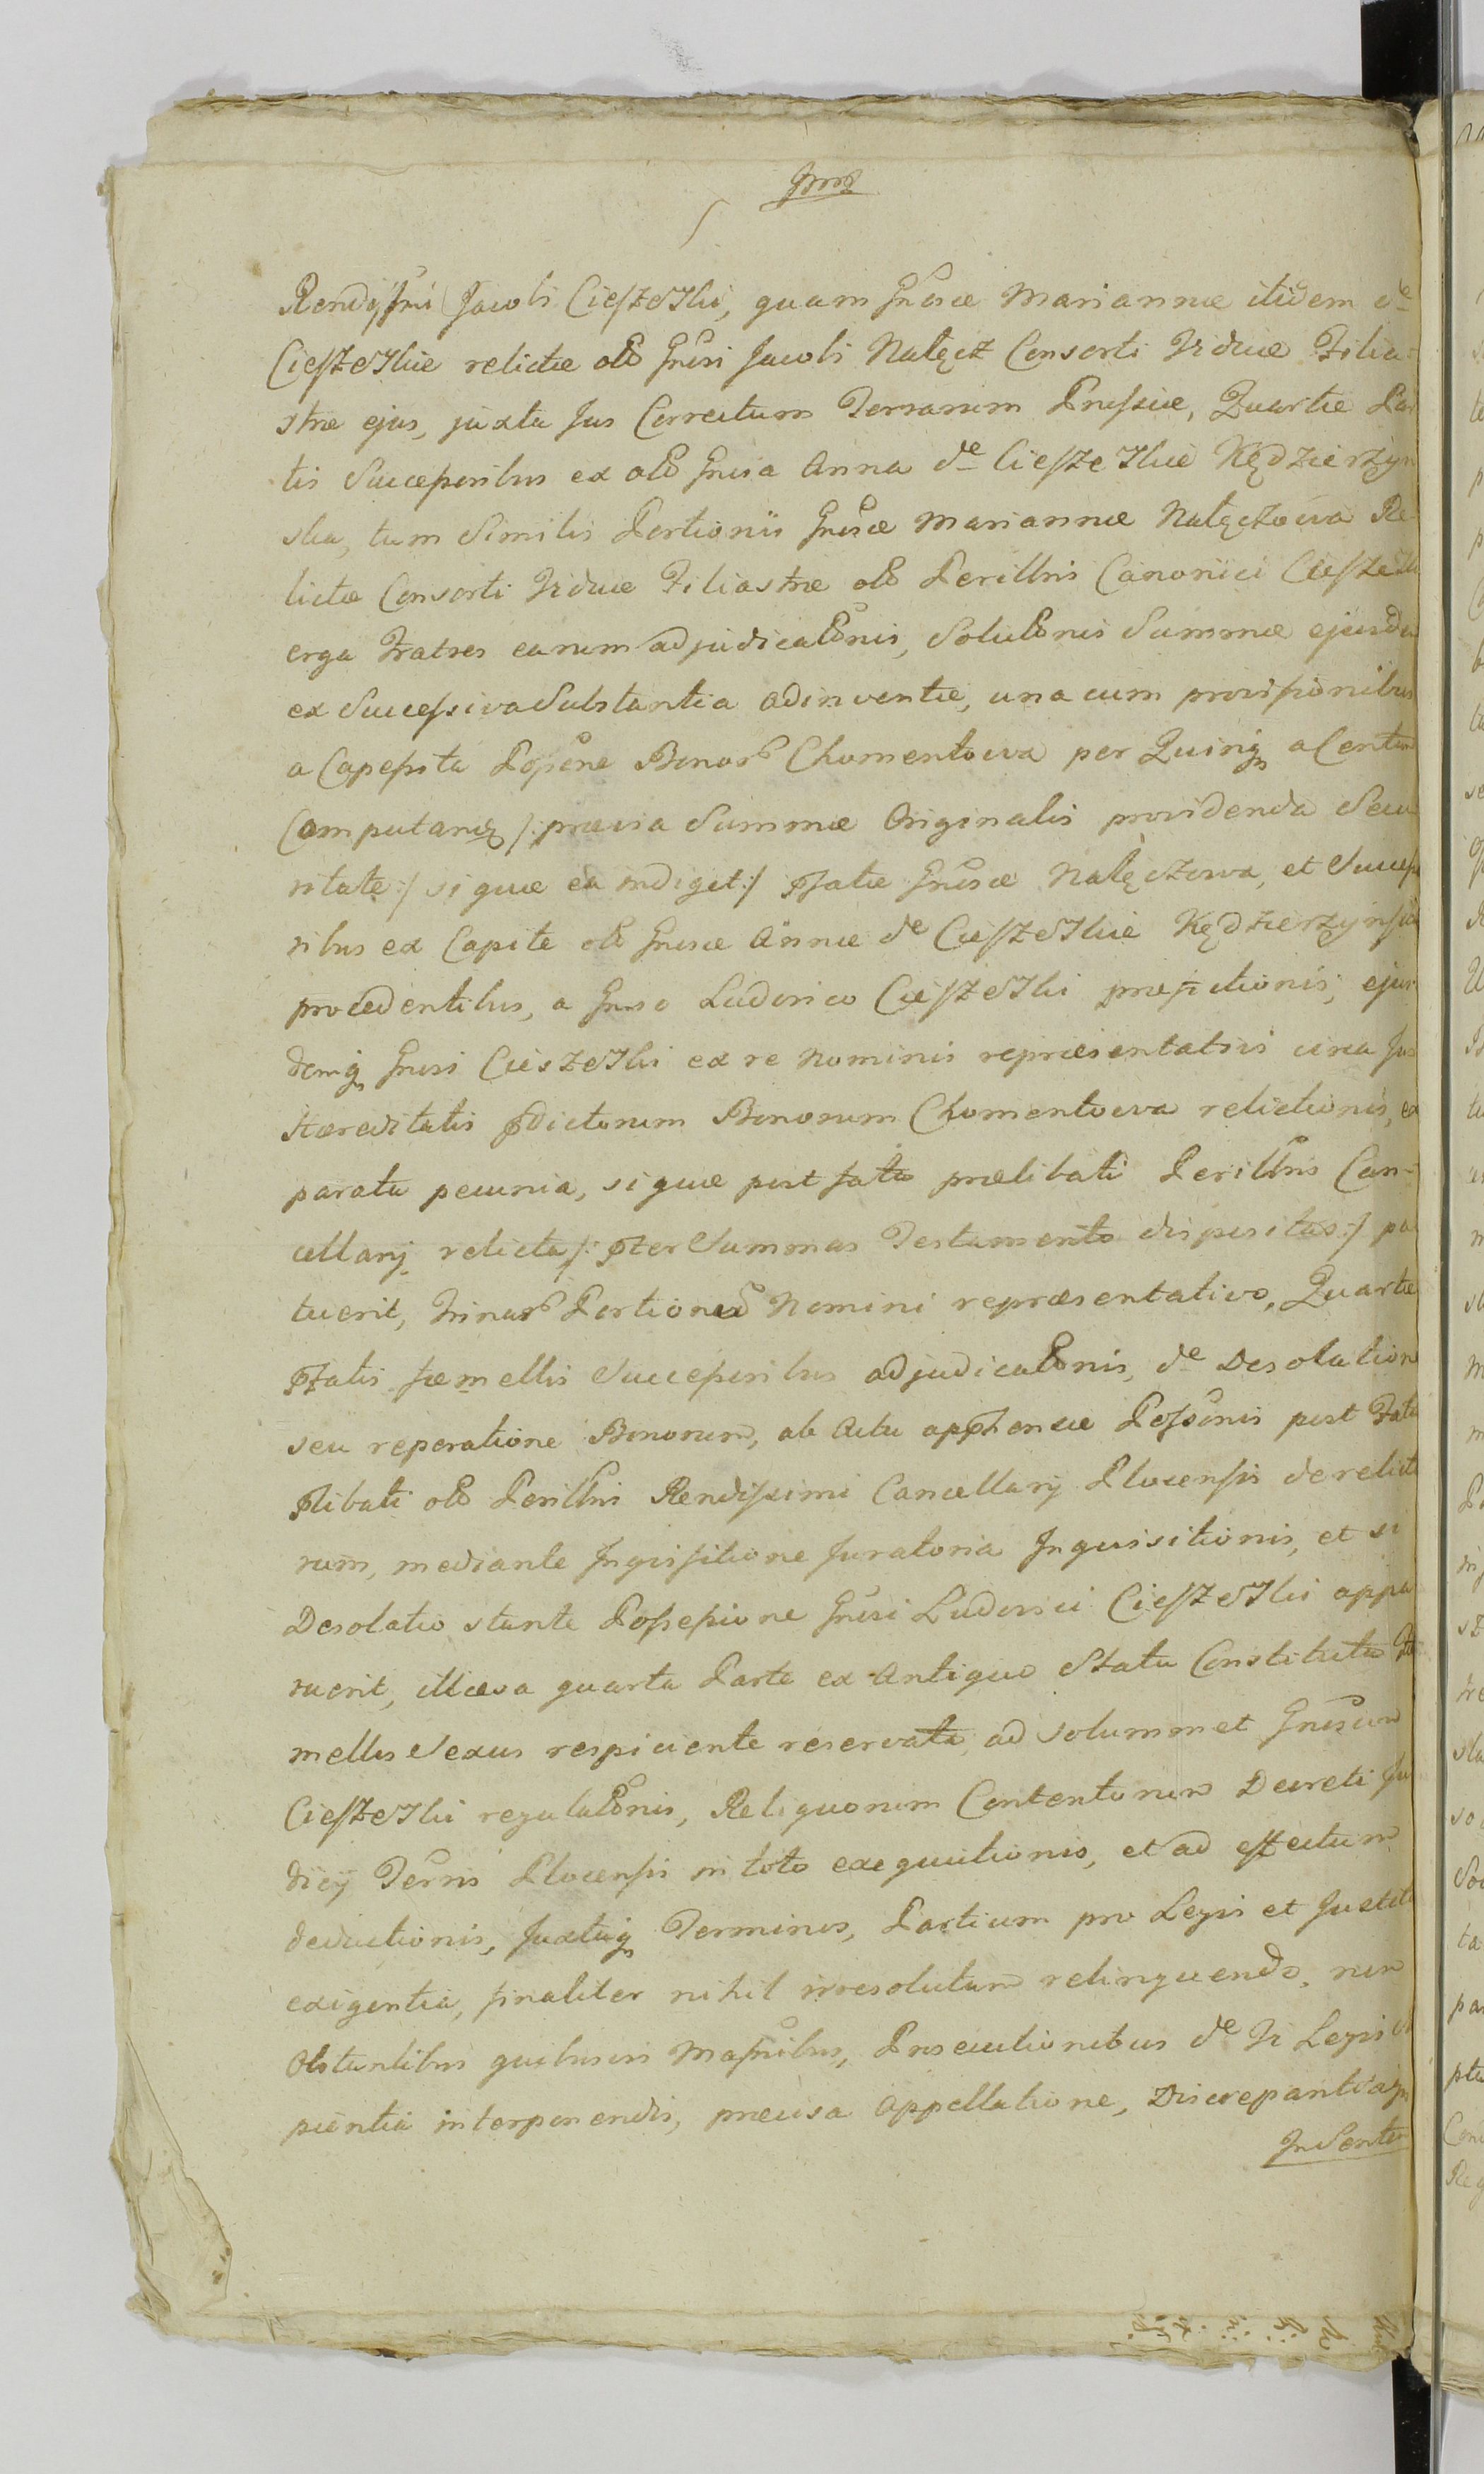 Rendissimi Jacobi Cieszelski, quam Gnosæ Mariannæ itidem de
Cieszelskie relictæ olim Gnosi Jacobi Nałęcz Consorti Viduæ Filia-
stræ ejus, juxta Jus Correctum Terrarum Prussiæ, Quartæ Par
tis Successoribus ex olim Gnosa Anna de Cieszelskie Kędzierzyn
ska, tum Similis Portionis Gnosæ Mariannæ Nałęczowa Re-
lictæ Consorti Viduæ Filiastræ olim Perillris Canonici Cieszelski
erga Fratres earum adjudicationis, Solutionis Summæ ejusdem
ex Successiva Substantia adinventæ, una cum provisionibus
a Capessita Possione Bonorum Chomentowa per Quinque a Centum
Computandis /: prævia Summæ Originalis providenda Secu
ritate :/ si quæ ea indiget :/ pfatæ Gnosæ Nałęczowa, et Successo
ribus ex Capite olim Gnosæ Annæ de Cieszelskie Kędzierzynska
procedentibus, a Gnoso Ludovico Cieszelski præfictionis, ejus
demque Gnosi Cieszelski ex re Nominis repræsentativi circa Jus
Hæreditatis pdictorum Bonorum Chomentowa relictionis, ex
parata pecunia, si quæ post fata prælibati Perillris Can-
cellarij relicta /: pter Summas Testamento dispositas :/ pa
tuerit, Trinarum Portionum Nomini repræsentativo, Quartæ
pfatis fæmellis Successoribus adjudicationis, de Desolatione
seu reperatione Bonorum, ab Actu apphensæ Possionis post Fata
plibati olim Perillris Rendissimi Cancellarij Plocensis derelicto
rum, mediante Inquisitione Juratoria Inquisitionis, et si
Desolatio stante Possessione Gnosi Ludovici Cieszelski appa
ruerit, illæsa quarta Parte ex Antiquo Statu Constituto Fæ
mellis Sexus respiciente reservata, ad solummet Gnosum
Cieszelski regulationis, Reliquorum Contentorum Decreti Ju
dicij Terris Plocensis in toto exequutionis, et ad effectum
deductionis, Juxtaque Terminos, Partium pro Legis et Justitiæ
exigentia, finaliter nihil irresolutum relinquendo, non
Obstantibus quibusvis Prosecutionibus de Vi Legis
interponendis, præcisa Appellatione, Discrepantiaque
In Senten